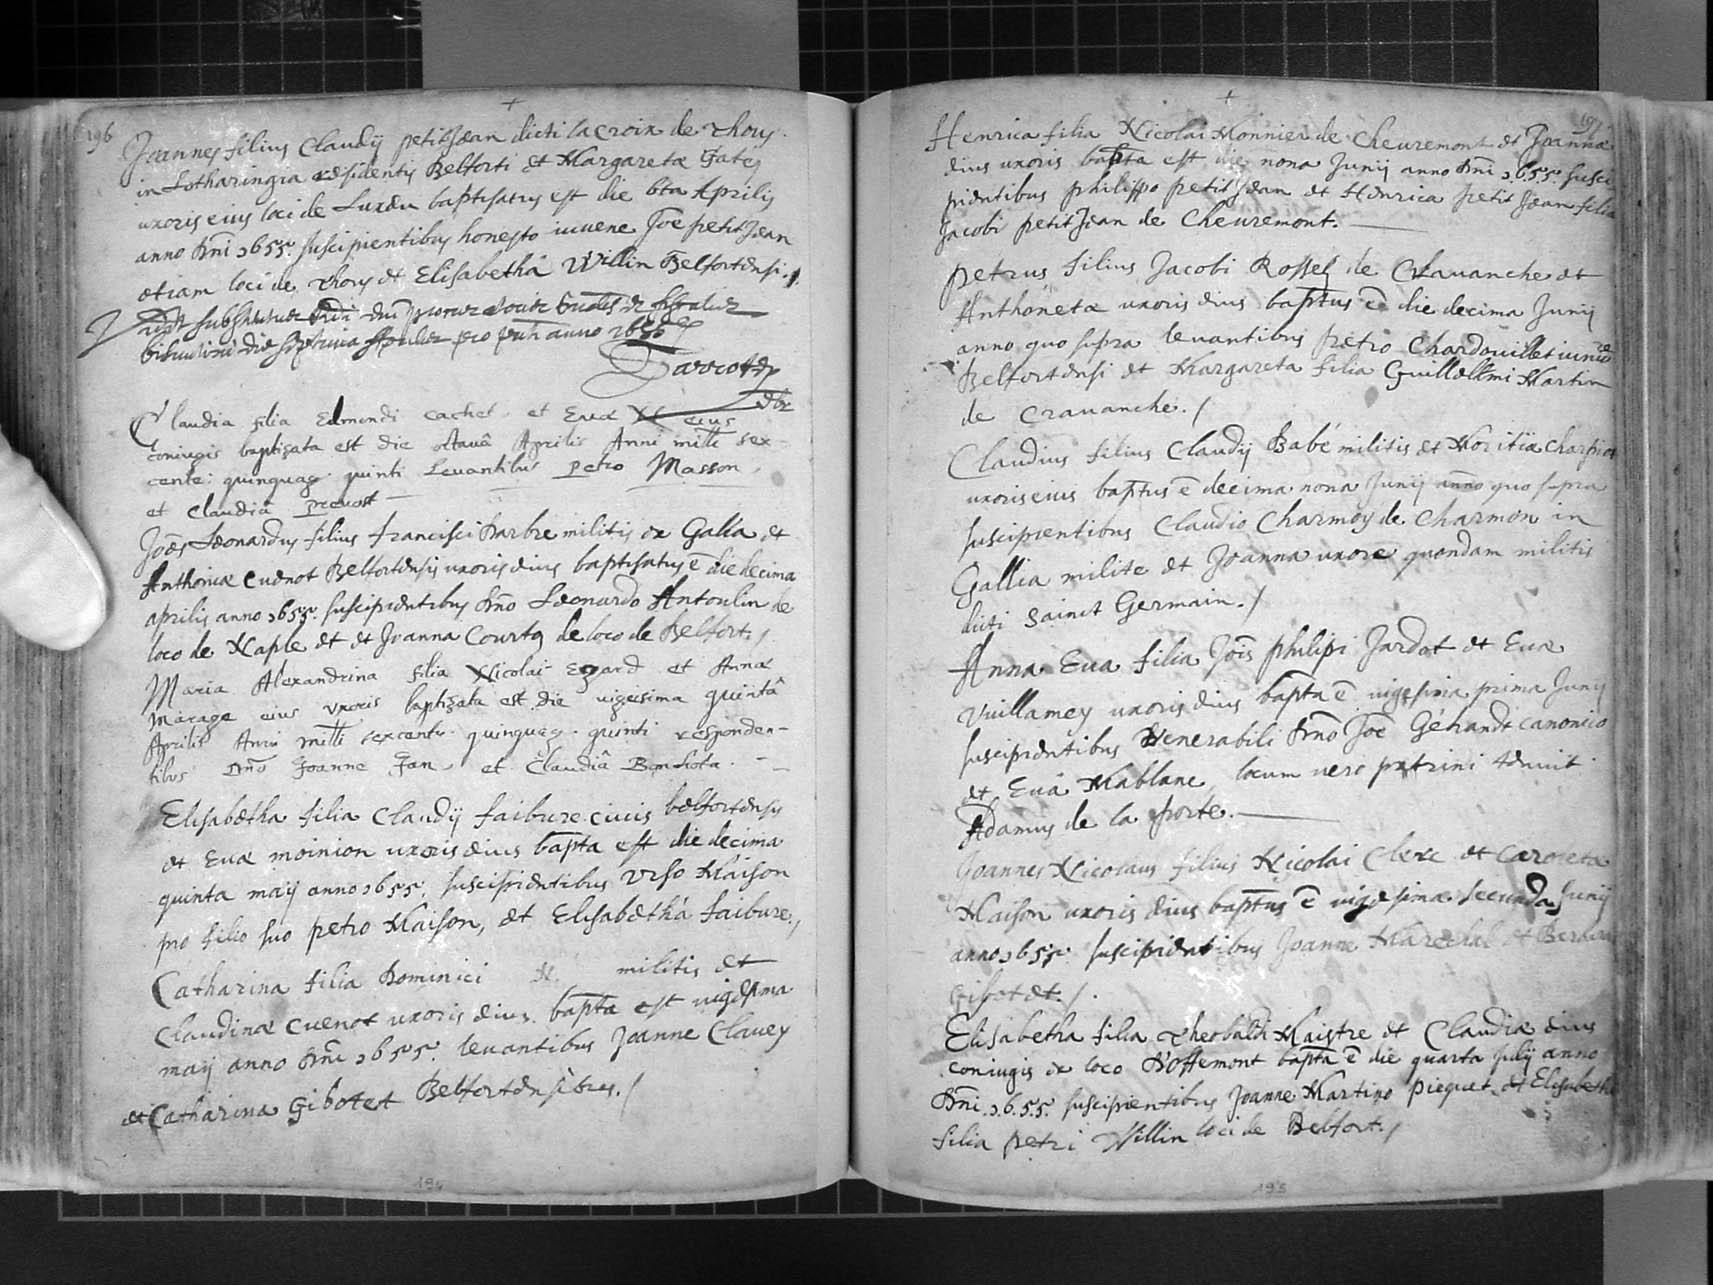 196
Joannes filius Claudij petitJean dicti la croix de Thoüs
in Lotharingia residentis Belforti et Margaretæ Fatés
uxoris eius loci de Luxeu baptisatus est die 6ta Aprilis
anno dñi 1655. suscipientibus honesto iuvene Joe petitJean
etiam loci de Thous et Elisabethâ Willin Belfortensi.
die septima anno 1655
Claudia filia Edmondi cachet et Evæ N eius
coniugis baptizata est die octavâ Aprilis Anni mill sex-
cente. quinquag. quinti Levantibus petro Masson
et Claudiâ prevost
Joês Leonardus filius francisci barbre militis ex Gallia et
Anthoniæ Cuenot Belfortensis uxoris eius baptisatus ê die decima
aprilis anno 1655. suscipientibus dño Leonardo Antoulin de
loco de Naple et et Joanna Courtq de loco de Belfort.
Maria Alexandrina filia Nicolai Egard et Annæ
Marage eius uxoris baptizata est die vigesima quintâ
Aprilis Anni mill sexcent. quinquag. quinti responden-
tibus Dño Joanne Jan et Claudiâ Bendiota.
Elisabetha filia Claudij faibure civis belfortensis
et Evæ moinion uxoris eius bapta est die decima
quinta maij anno 1655. suscipientibus Urso Maison
pro filio suo petro Maison, et Elisabethâ faibure.
Catharina filia Dominici N. militis et
Claudinæ Cuenot uxoris eius bapta est vigesima
maij anno dñi 1655. levantibus Joanne Clavey
et Catharina Gibotet Belfortensibus.
194
197
Henrica filia Nicolai Monnier de Chevremont et Joannæ
eius uxoris bapta est die nona Junij anno dñi 1655. susci
pientibus philippo petitJean et Henrica petitJean filia
Jacobi petitJean de Chevremont.
Petrus filius Jacobi Rossel de Cravanche et
Anthonetæ uxoris eius baptus ê die decima Junij
anno quo supra levantibus petro Chardouillet iuniore
Belfortensi et Margareta filia Guillelmi Martin
de Cravanche.
Claudius filius Claudij Babé militis et Moritiæ Charpiot
uxoris eius baptus ê decima nona Junij anno quo supra
suscipientibus Claudio Charmoy de Charmon in
Gallia milite et Joanna uxore quondam militis
dicti Sainct Germain.
Anna Eva filia Jois philipi Jardot et Evæ
Vuillamey uxoris eius bapta ê vigesima prima Junij
suscipientibus Venerabili dño Joê Gérardt canonico
et Evâ Mablanc locum vero patrini tenuit
Adamus de la porte.
Joannes Nicolaus filius Nicolai Clerc et Caroletæ
Maison uxoris eius baptus ê vigesima secunda Junij
anno 1655. suscipientibus Joanne Marechal et Barbara
Gibotet.
Elisabetha filia Theobaldi Maistre et Claudiæ eius
coniugis ex loco D'offemont bapta ê die quarta Julij anno
dñi 1655. suscipientibus Joanne Martino piequet et Elisabetha
filia petri Willin loci de Belfort.
195